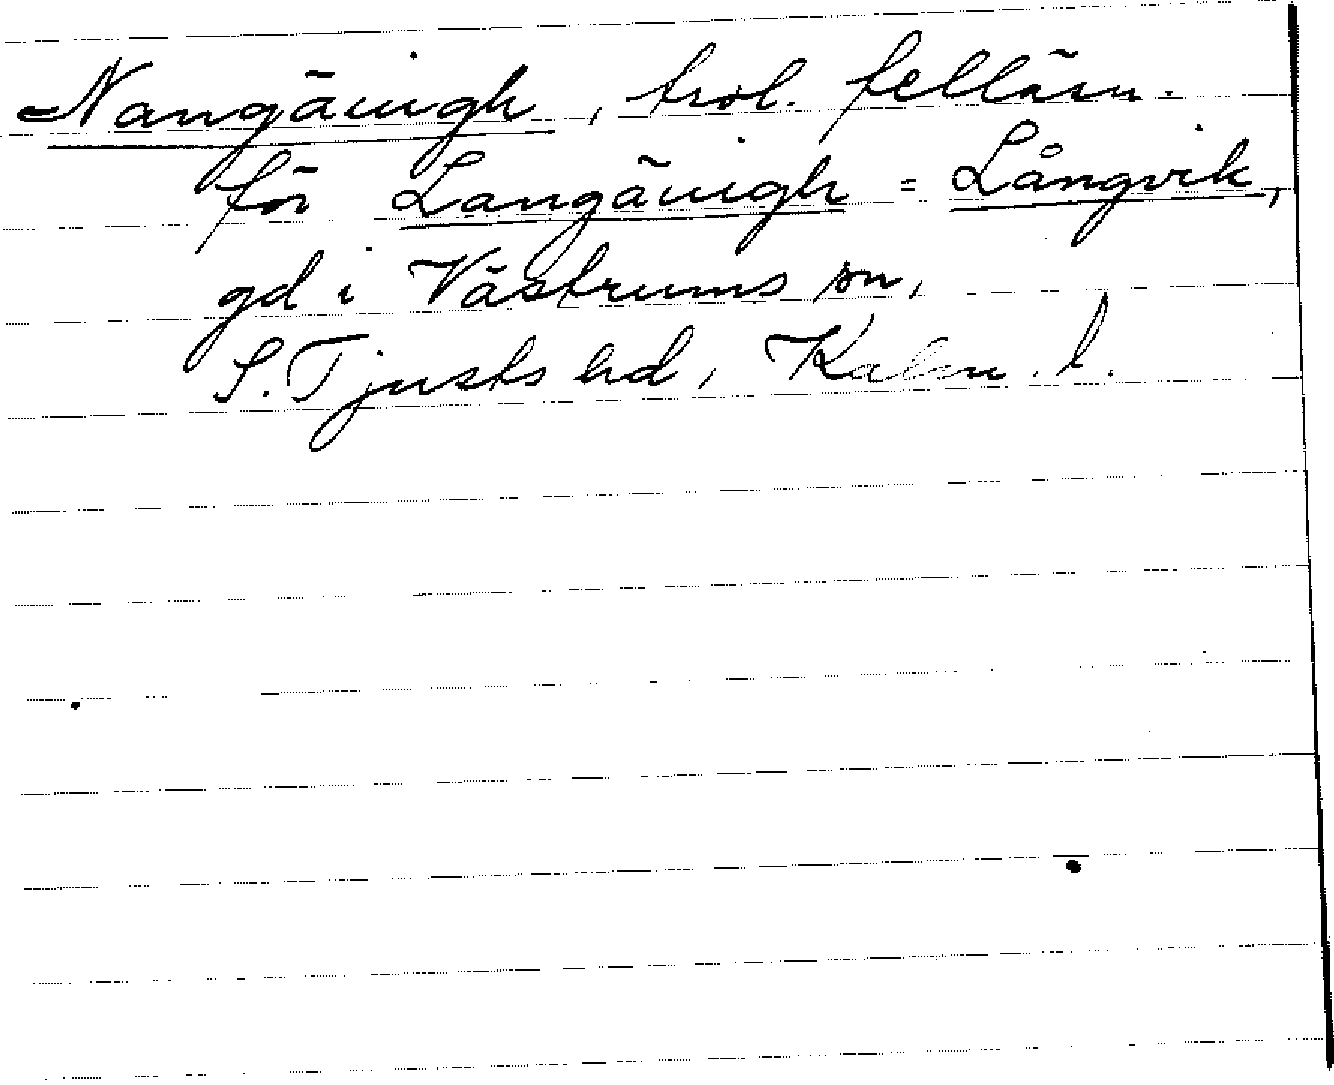 Nangäuigh, trol. felläsn.
för Langäuigh = Långvik,
gd i Västrums sn,
S. Tjusts hd, Kalm. l.